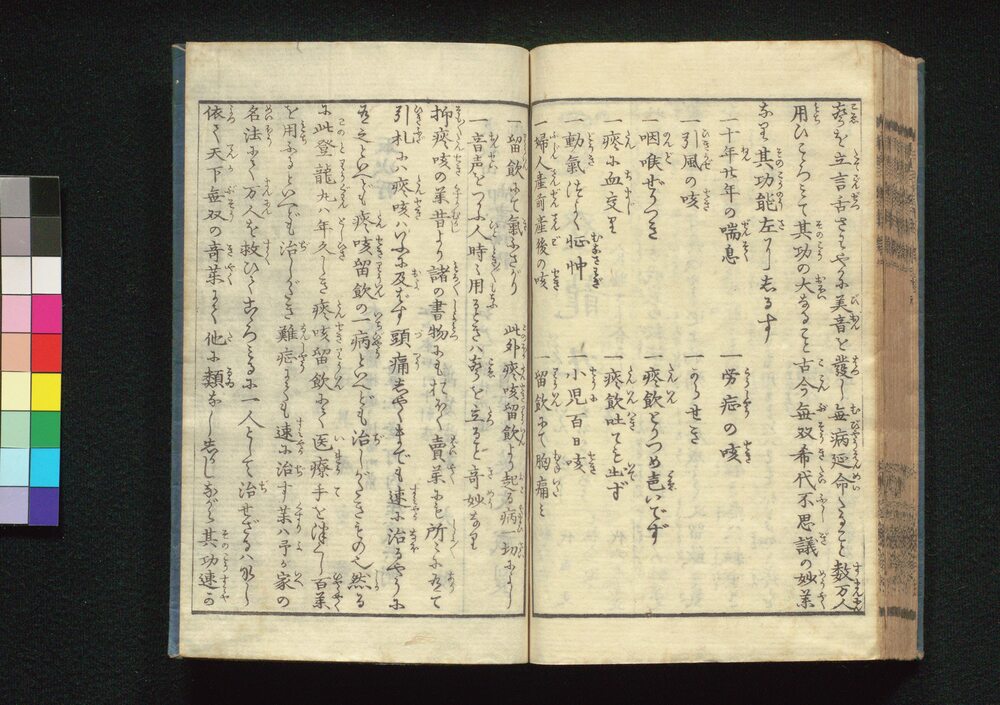 声を立言舌さわやかに美音を發し無病延命たること数万人
用ひこゝろミて其功の大なること古今無双希代不思議の妙薬
なり其功能左にしるす
一十年廿年の喘息
一労症の咳
一引風の咳
一からせき
一咽喉ぜりつき
一痰飲とりつめ声いでず
一痰に血交り
一痰飲吐て止ず
一動氣つよく怔忡
一小児百日咳
一婦人産前産後の咳
一留飲にて胸痛ミ
一留飲にて氣ふさがり
此外痰咳留飲より起る病一切によし
一音声をつかふ人時々用るときハ声を立るなど奇妙なり
抑痰咳の薬昔より諸の書物にも打多く賣薬にも所々に有て
引札にハ痰咳ハいふに及ばず頭痛しやくまでも速に治るやうに
有之といへども痰咳留飲の一病といへども治しがたきもの也然る
に此登龍丸ハ年久しき痰咳留飲にて医療手を尽し百薬
を用ふるといへども治しがたき難症にても速に治す薬ハ予が家の
名法にて万人を救ひてこゝろミるに一人として治せざるハなし
依て天下無双の奇薬にて他に類なし然しながら其功速か